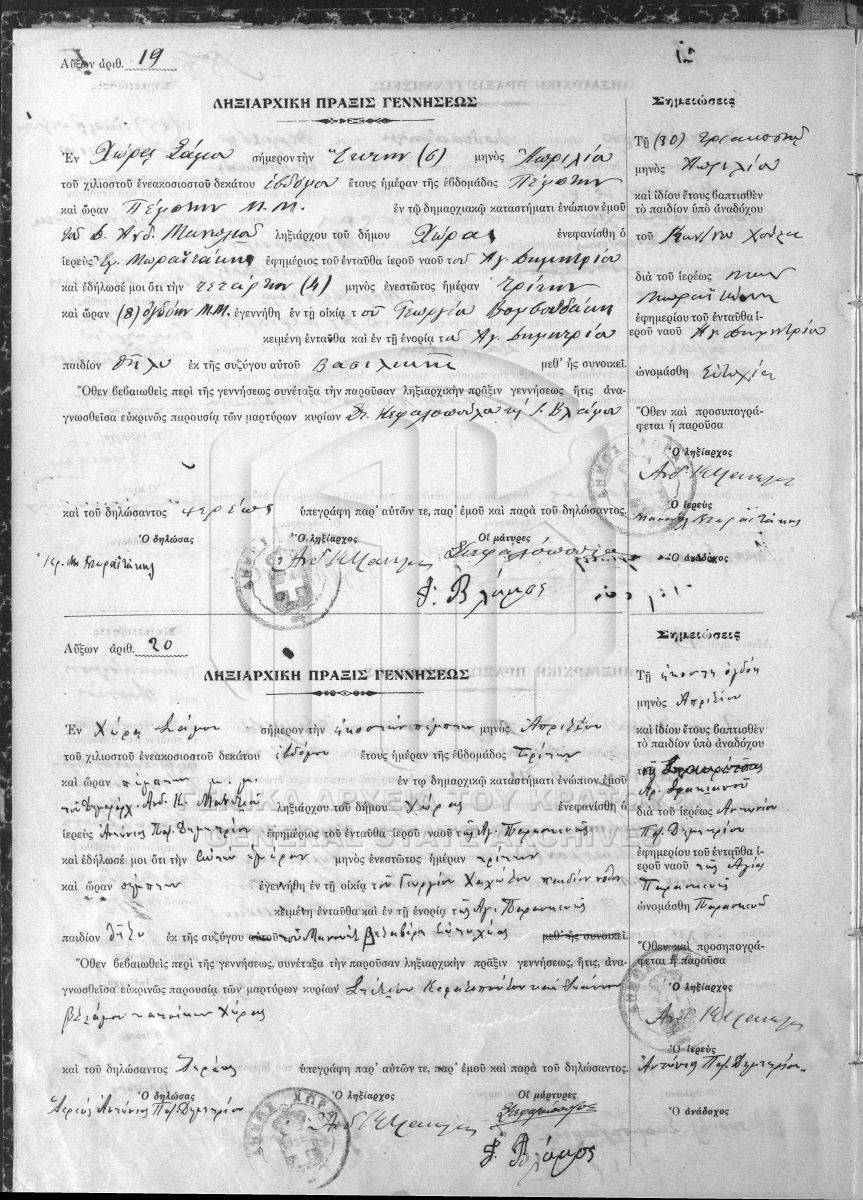 Αὔξων ἀριθ. 19
ΛΗΞΙΑΡΧΙΚΗ ΠΡΑΞΙΣ ΓΕΝΝΗΣΕΩΣ
Ἐν Χώρᾳ Σάμου σήμερον τὴν Ἕκτην (6) μηνὸς Ἀπριλίου
τοῦ χιλιοστοῦ ἐνεακοσιοστοῦ δεκάτου ἑβδόμου ἔτους ἡμέραν τῆς ἑβδομάδος Πέμπτην
καὶ ὥραν Πέμπτην Μ.Μ. ἐν τῷ δημαρχιακῷ καταστήματι ἐνώπιον ἐμοῦ
τοῦ Ἀνδ. ληξιάρχου τοῦ δήμου Χώρας ἐνεφανίσθη ὁ
ἱερεὺς Ἐμ. Μωραϊτάκης ἐφημέριος τοῦ ἐνταῦθα ἱεροῦ ναοῦ τοῦ Ἁγ. Δημητρίου
καὶ ἐδήλωσέ μοι ὅτι τὴν τετάρτην (4) μηνὸς ἐνεστῶτος ἡμέραν τρίτην
καὶ ὥραν (8) ὀγδόην Μ.Μ. ἐγεννήθη ἐν τῇ οἰκίᾳ τοῦ Γεωργίου
κειμένῃ ἐνταῦθα καὶ ἐν τῇ ἐνορίᾳ τοῦ Ἁγ. Δημητρίου
παιδίον θῆλυ ἐκ τῆς συζύγου αὐτοῦ Βασιλικῆς μεθ' ἧς συνοικεῖ.
Ὅθεν βεβαιωθεὶς περὶ τῆς γεννήσεως συνέταξα τὴν παροῦσαν ληξιαρχικὴν πρᾶξιν γεννήσεως ἥτις ἀνα-
γνωσθεῖσα εὐκρινῶς παρουσίᾳ τῶν μαρτύρων κυρίων Στ. Κεφαλοπούλου καὶ Ι. Βλάμου
καὶ τοῦ δηλώσαντος ἱερέως ὑπεγράφη παρ' αὐτῶν τε, παρ' ἐμοῦ καὶ παρὰ τοῦ δηλώσαντος.
Ὁ δηλώσας Ὁ ληξίαρχος Οἱ μάρτυρες
Μωραϊτάκης Ἀνδ Κ
Ι. Βλάμος
Σημειώσεις
Τῇ (30) τριακοστῇ
μηνὸς Ἀπριλίου
καὶ ἰδίου ἔτους βαπτισθὲν
τὸ παιδίον ὑπὸ ἀναδόχου
τοῦ
διὰ τοῦ ἱερέως
Μωραϊτάκη
ἐφημερίου τοῦ ἐνταῦθα ἱ-
εροῦ ναοῦ Ἁγ. Δημητρίου
ὠνομάσθη Εὐτυχία
Ὅθεν καὶ προσυπογρά-
φεται ἡ παροῦσα
Ὁ ληξίαρχος
Ἀνδ Κ
Ὁ ἱερεὺς
Μωραϊτάκης
Ὁ ἀνάδοχος
Αὔξων ἀριθ. 20
ΛΗΞΙΑΡΧΙΚΗ ΠΡΑΞΙΣ ΓΕΝΝΗΣΕΩΣ
Ἐν Χώρᾳ Σάμου σήμερον τὴν εἰκοστὴν πέμπτην μηνὸς Ἀπριλίου
τοῦ χιλιοστοῦ ἐνεακοσιοστοῦ δεκάτου ἑβδόμου ἔτους ἡμέραν τῆς ἑβδομάδος Τρίτην
καὶ ὥραν πέμπτην μ. μ. ἐν τῷ δημαρχιακῷ καταστήματι ἐνώπιον ἐμοῦ
τοῦ Δημάρχ. Ἀνδ. Κ. ληξιάρχου τοῦ δήμου Χώρας ἐνεφανίσθη ὁ
ἱερεὺς Ἀντώνιος Παπ. Δημητρίου ἐφημέριος τοῦ ἐνταῦθα ἱεροῦ ναοῦ τῆς Ἁγ. Παρασκευῆς
καὶ ἐδήλωσέ μοι ὅτι τὴν μηνὸς ἐνεστῶτος ἡμέραν τρίτην
καὶ ὥραν πέμπτην ἐγεννήθη ἐν τῇ οἰκίᾳ τοῦ Γεωργίου παιδίον
κειμένῃ ἐνταῦθα καὶ ἐν τῇ ἐνορίᾳ τῆς Ἁγ. Παρασκευῆς
παιδίον θῆλυ ἐκ τῆς συζύγου αὐτοῦ τοῦ Εὐτυχίας μεθ' ἧς συνοικεῖ.
Ὅθεν βεβαιωθεὶς περὶ τῆς γεννήσεως, συνέταξα τὴν παροῦσαν ληξιαρχικὴν πρᾶξιν γεννήσεως, ἥτις, ἀνα-
γνωσθεῖσα εὐκρινῶς παρουσίᾳ τῶν μαρτύρων κυρίων Στυλ. Κεφαλοπούλου καὶ Ἰωάννου
Βλάμου κατοίκων Χώρας
καὶ τοῦ δηλώσαντος Ἱερέως ὑπεγράφη παρ' αὐτῶν τε, παρ' ἐμοῦ καὶ παρὰ τοῦ δηλώσαντος.
Ὁ δηλώσας Ὁ ληξίαρχος Οἱ μάρτυρες
Ἱερεὺς Ἀντώνιος Παπ. Δημητρίου Ἀνδ Κ
Ι. Βλάμος
Σημειώσεις
Τῇ εἰκοστῇ ὀγδόῃ
μηνὸς Ἀπριλίου
καὶ ἰδίου ἔτους βαπτισθὲν
τὸ παιδίον ὑπὸ ἀναδόχου
διὰ τοῦ ἱερέως Ἀντωνίου
Παπ. Δημητρίου
ἐφημερίου τοῦ ἐνταῦθα ἱ-
εροῦ ναοῦ τῆς Ἁγίας
Παρασκευῆς
ὠνομάσθη Παρασκευὴ
Ὅθεν καὶ προσηπογρά-
φεται ἡ παροῦσα
Ὁ ληξίαρχος
Ἀνδ Κ
Ὁ ἱερεὺς
Ἀντώνιος Παπ. Δημητρίου
Ὁ ἀνάδοχος
ΓΕΝΙΚΑ ΑΡΧΕΙΑ ΤΟΥ ΚΡΑΤΟΥΣ
GENERAL STATE ARCHIVES